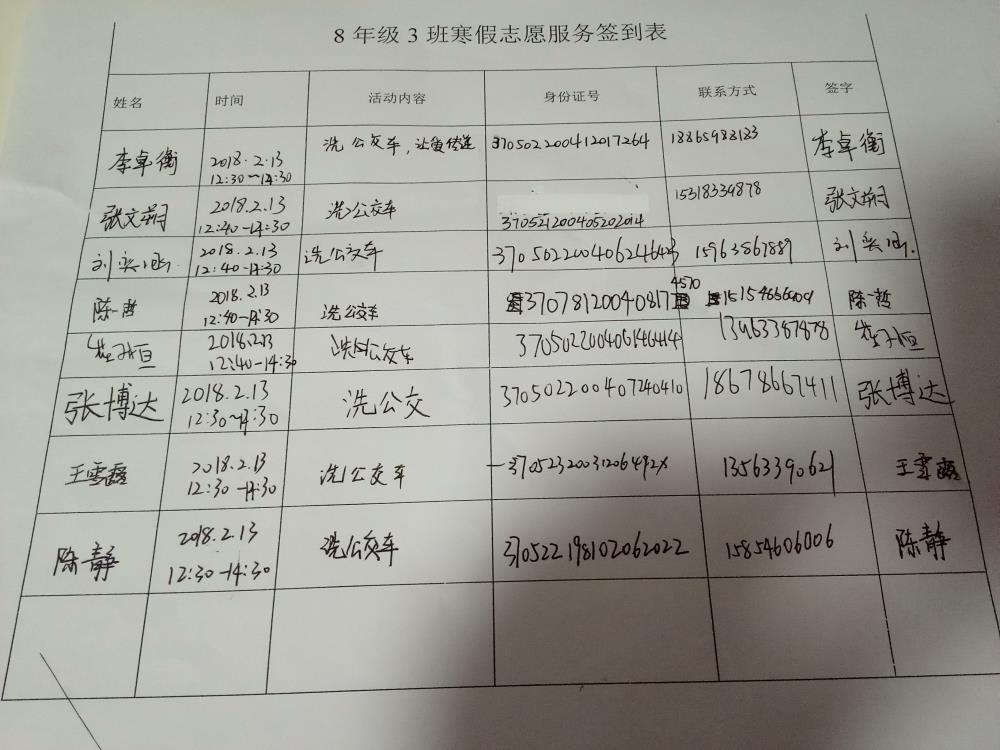 8年级3班寒假志愿服务签到表
姓名 时间 活动内容 身份证号 联系方式 签字
李卓衡 2018.2.13 12:30—14:30 洗公交车,让爱传递 370502200412017264 18865988183 李卓衡
张文 2018.2.13 12:40-14:30 洗公交车 370521200405202014 15318334878 张文
刘奕涵 2018.2.13 12:40-14:30 洗公交车 15963867889 刘奕涵
陈一哲 2018.2.13 12:40-14:30 洗公交车 370781200408174570 陈一哲
2018.2.13 12:40-14:30 洗公交车
张博达 2018.2.13 12:30~14:30 洗公交 370502200407240410 18678667411 张博达
王雪露 2018.2.13 12:30-14:30 洗公交车 37052320031206492X 13563390621 王雪露
陈静 2018.2.13 12:30-14:30 洗公交车 370522198102062022 15854606006 陈静